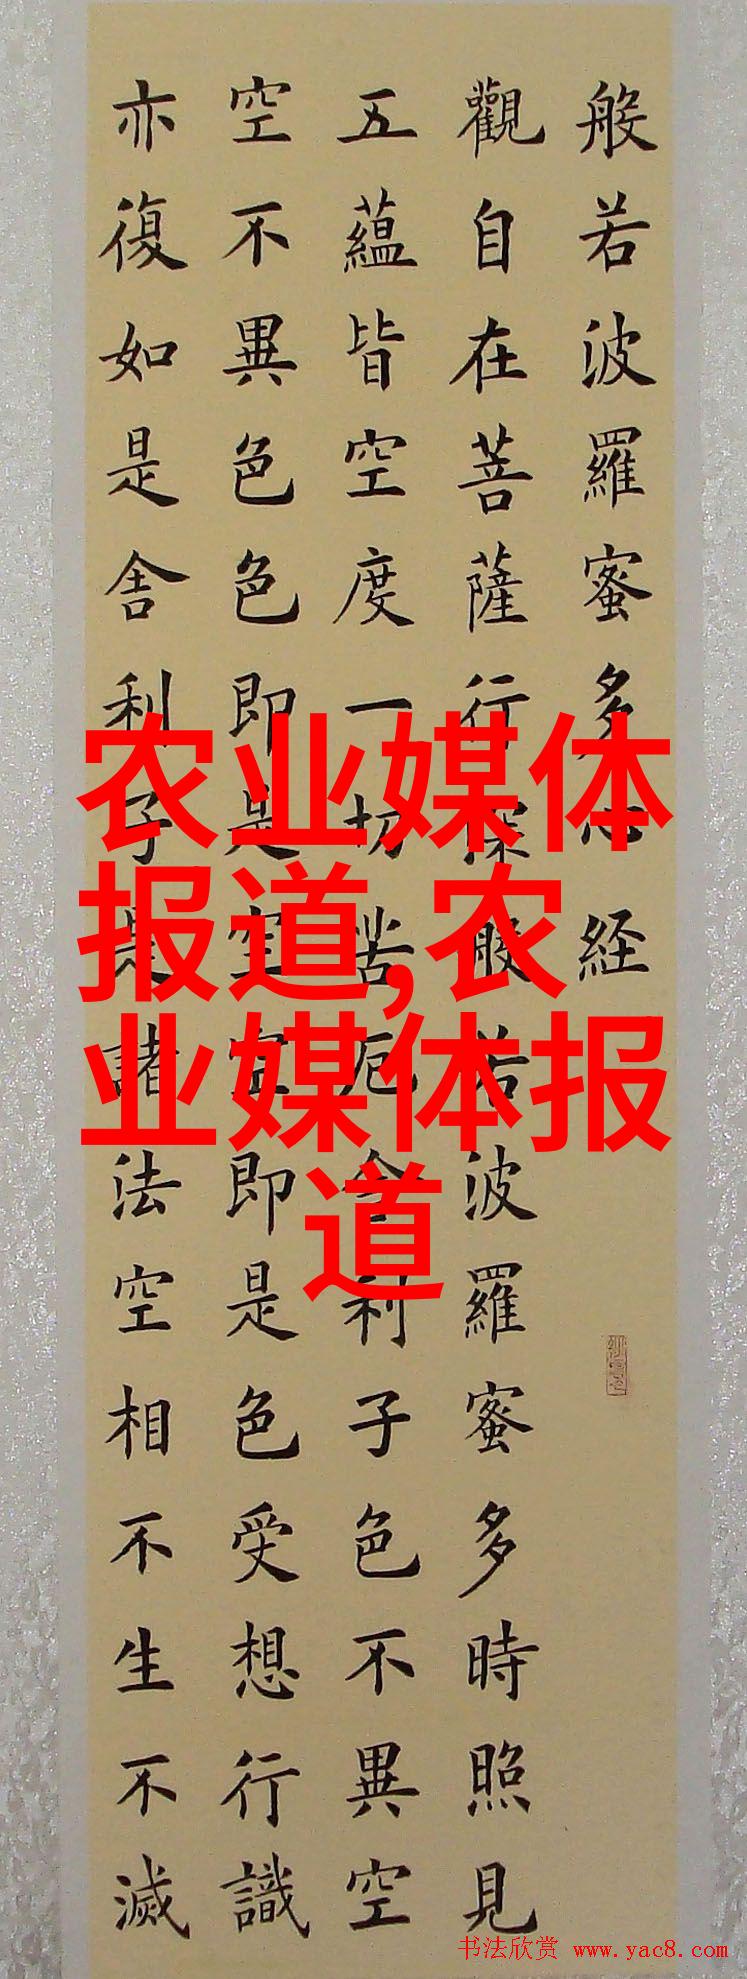 般若波羅蜜多心経
觀自在菩薩行深般若波羅蜜多時照見
五蘊皆空度一切苦厄舍利子色不異空
空不異色色即是空空即是色受想行識
亦復如是舍利子是諸法空相不生不滅
农业媒体
报道,农
业媒体报
道
书法欣赏 www.yac8.com